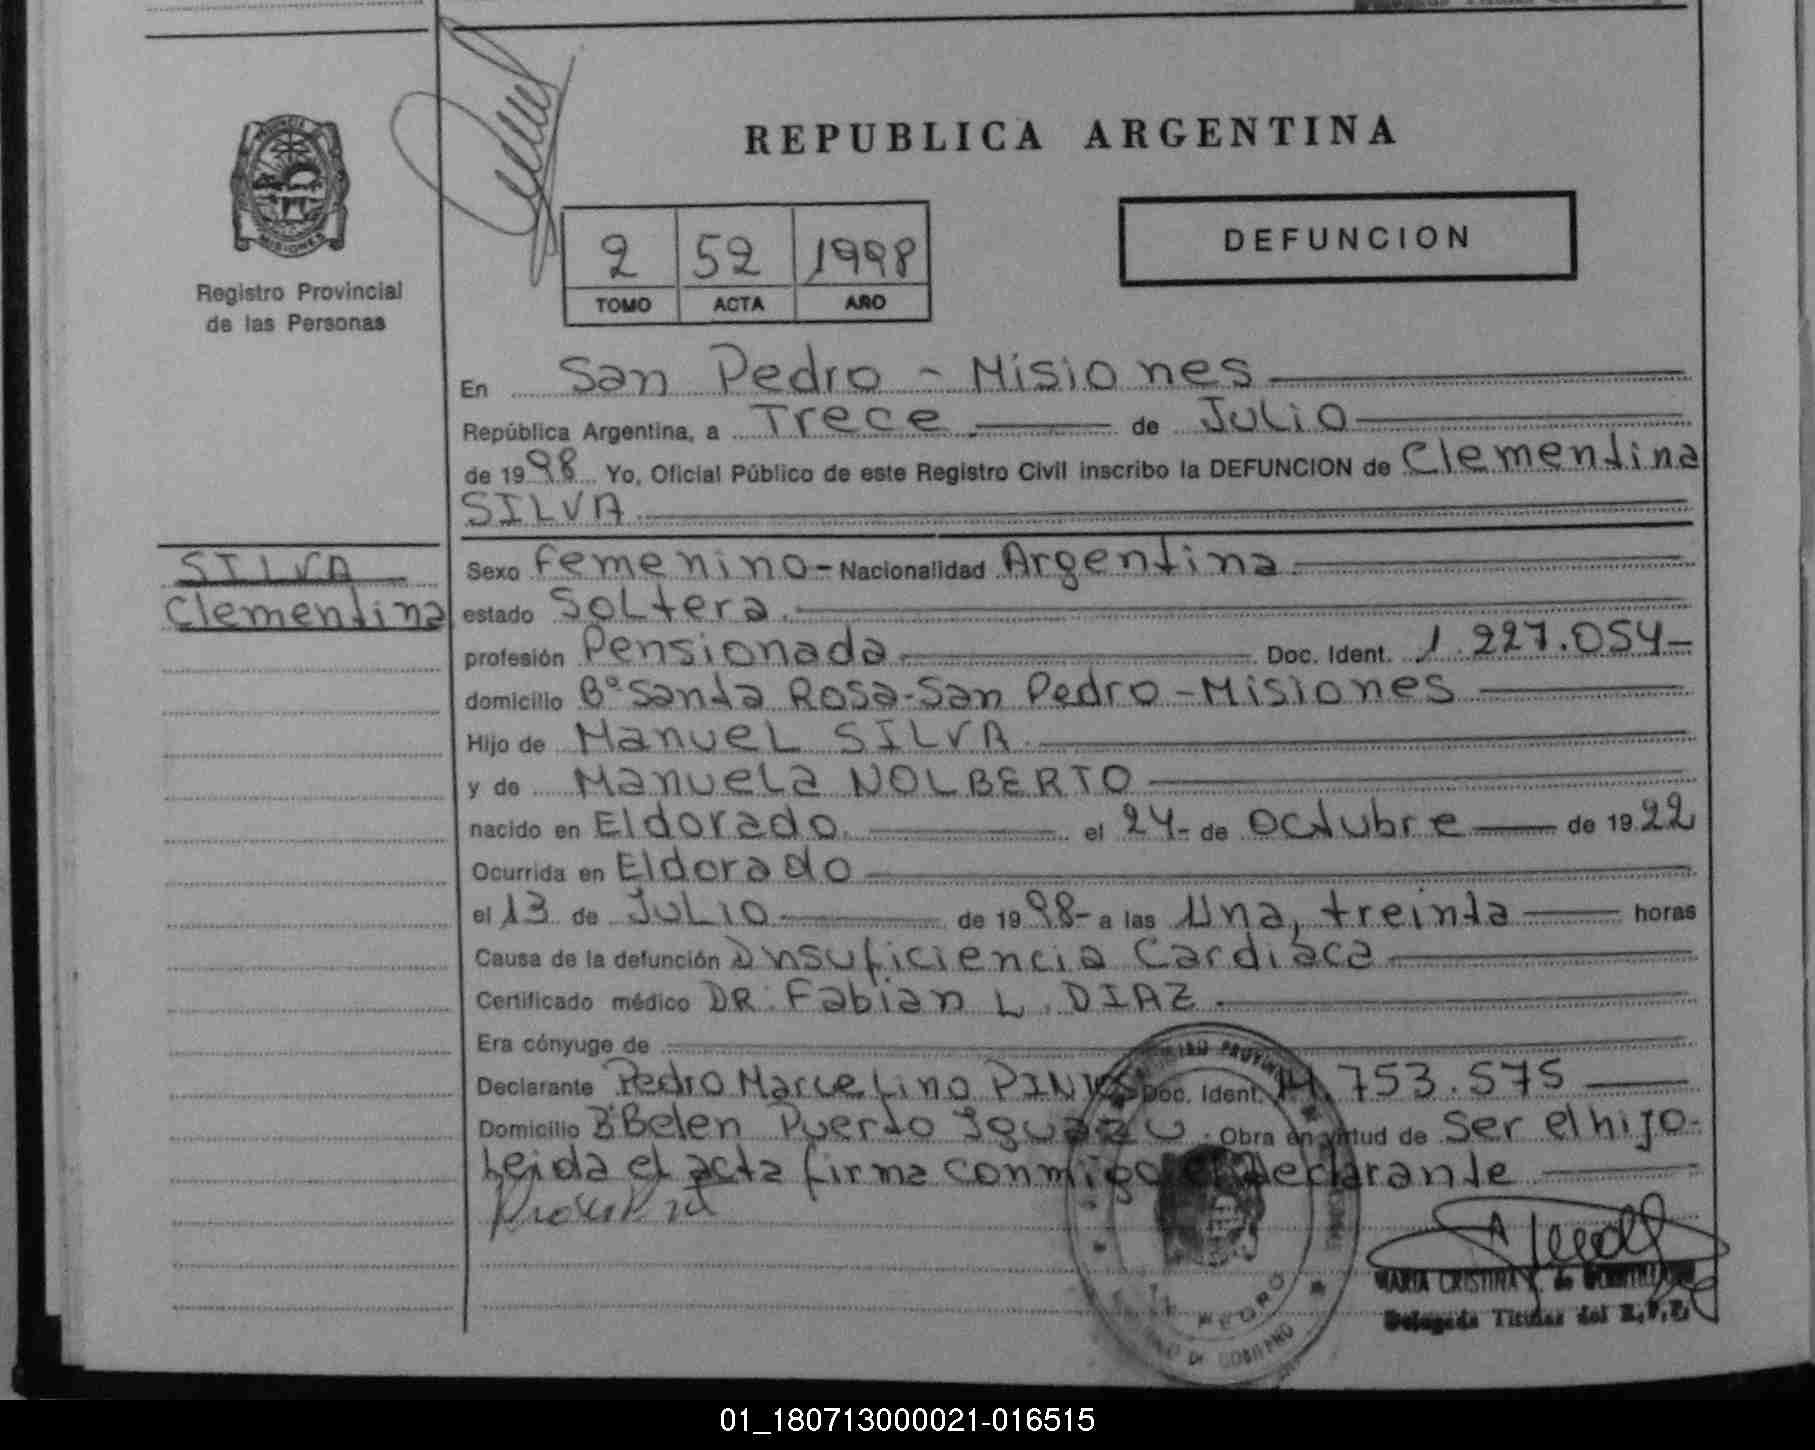 REPUBLICA ARGENTINA
PROVINCIA DE
MISIONES
Registro Provincial
de las Personas
DEFUNCION
2 52 1998
TOMO ACTA AÑO
En San Pedro - Misiones
República Argentina, a Trece de Julio
de 1998 Yo, Oficial Público de este Registro Civil inscribo la DEFUNCION de Clementina
SILVA
SILVA
Clementina
Sexo Femenino - Nacionalidad Argentina
estado Soltera.
profesión Pensionada Doc. Ident. 1.227.054-
domicilio Bº Santa Rosa-San Pedro-Misiones
Hijo de Manuel SILVA
y de Manuela NOLBERTO
nacido en Eldorado. el 24- de Octubre de 1922
Ocurrida en Eldorado
el 13 de Julio de 1998- a las Una, treinta horas
Causa de la defunción Insuficiencia Cardiaca
Certificado médico DR. Fabian L. DIAZ.
Era cónyuge de
Declarante Pedro Marcelino Doc. Ident. 14.753.575
Domicilio Bº Belen Puerto Iguazu. Obra en virtud de Ser el hijo-
Leida el acta firma conmigo el declarante
PEDRO
DE GOBIERNO
MARIA CRISTINA de
Delegada Titular del R.P.P.
01_180713000021-016515